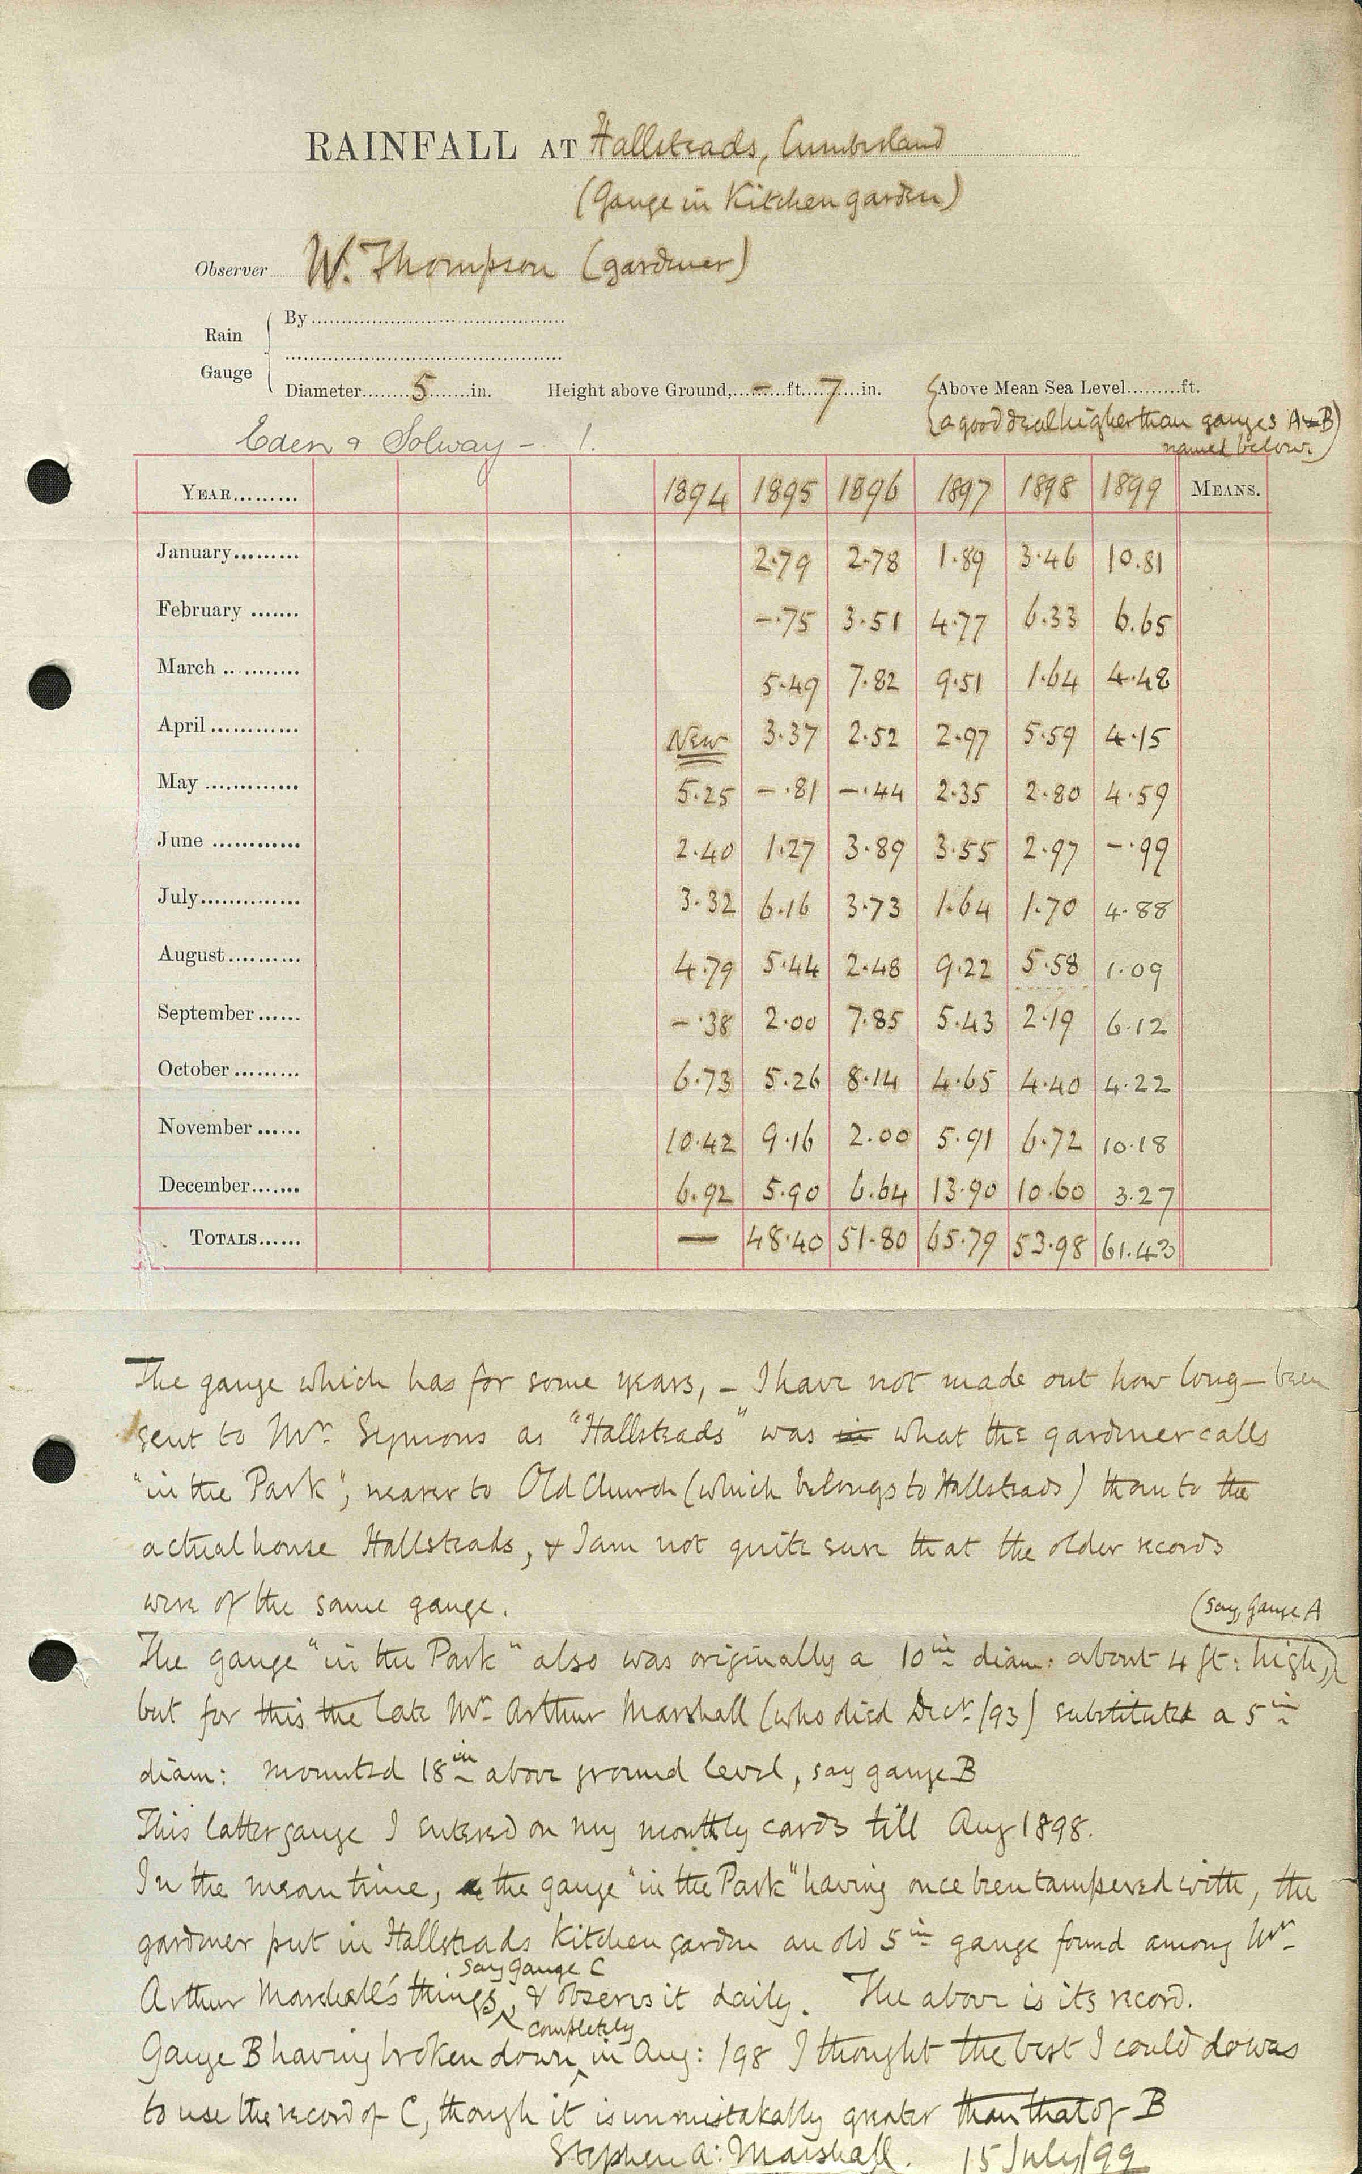 RAINFALL AT Hallsteads, Cumberland
(Gauge in Kitchen garden)
Observer W. Thompson (gardener)
Rain Gauge
By
Diameter 5 in. Height above Ground, - ft. 7 in. Above Mean Sea Level ft.
(a good deal higher than gauges A & B
named below)
Eden & Solway - 1.
YEAR 1894 1895 1896 1897 1898 1899 MEANS.
January 2.79 2.78 1.89 3.46 10.81
February -.75 3.51 4.77 6.33 6.65
March 5.49 7.82 9.51 1.64 4.48
April New 3.37 2.52 2.97 5.59 4.15
May 5.25 -.81 -.44 2.35 2.80 4.59
June 2.40 1.27 3.89 3.55 2.97 -.99
July 3.32 6.16 3.73 1.64 1.70 4.88
August 4.79 5.44 2.48 9.22 5.58 1.09
September -.38 2.00 7.85 5.43 2.19 6.12
October 6.73 5.26 8.14 4.65 4.40 4.22
November 10.42 9.16 2.00 5.91 6.72 10.18
December 6.92 5.90 6.64 13.90 10.60 3.27
TOTALS — 48.40 51.80 65.79 53.98 61.43
The gauge which has for some years, - I have not made out how long - been
sent to Mr. Symons as "Hallsteads" was in what the gardener calls
"in the Park", nearer to Old Church (which belongs to Hallsteads) than to the
actual house Hallsteads, & I am not quite sure that the older records
were of the same gauge.
(say, Gauge A
The gauge "in the Park" also was originally a 10in diam: about 4 ft: high,)
but for this the late Mr. Arthur Marshall (who died Decr. /93) substituted a 5in
diam: mounted 18in above ground level, say gauge B
This latter gauge I entered on my monthly cards till Aug 1898.
In the mean time, the gauge "in the Park" having once been tampered with, the
gardener put in Hallsteads Kitchen garden an old 5in gauge found among Mr.
say gauge C
Arthur Marshall's things, & observes it daily. The above is its record.
completely
Gauge B having broken down in Aug: /98 I thought the best I could do was
to use the record of C, though it is unmistakably greater than that of B
Stephen A: Marshall. 15 July/99